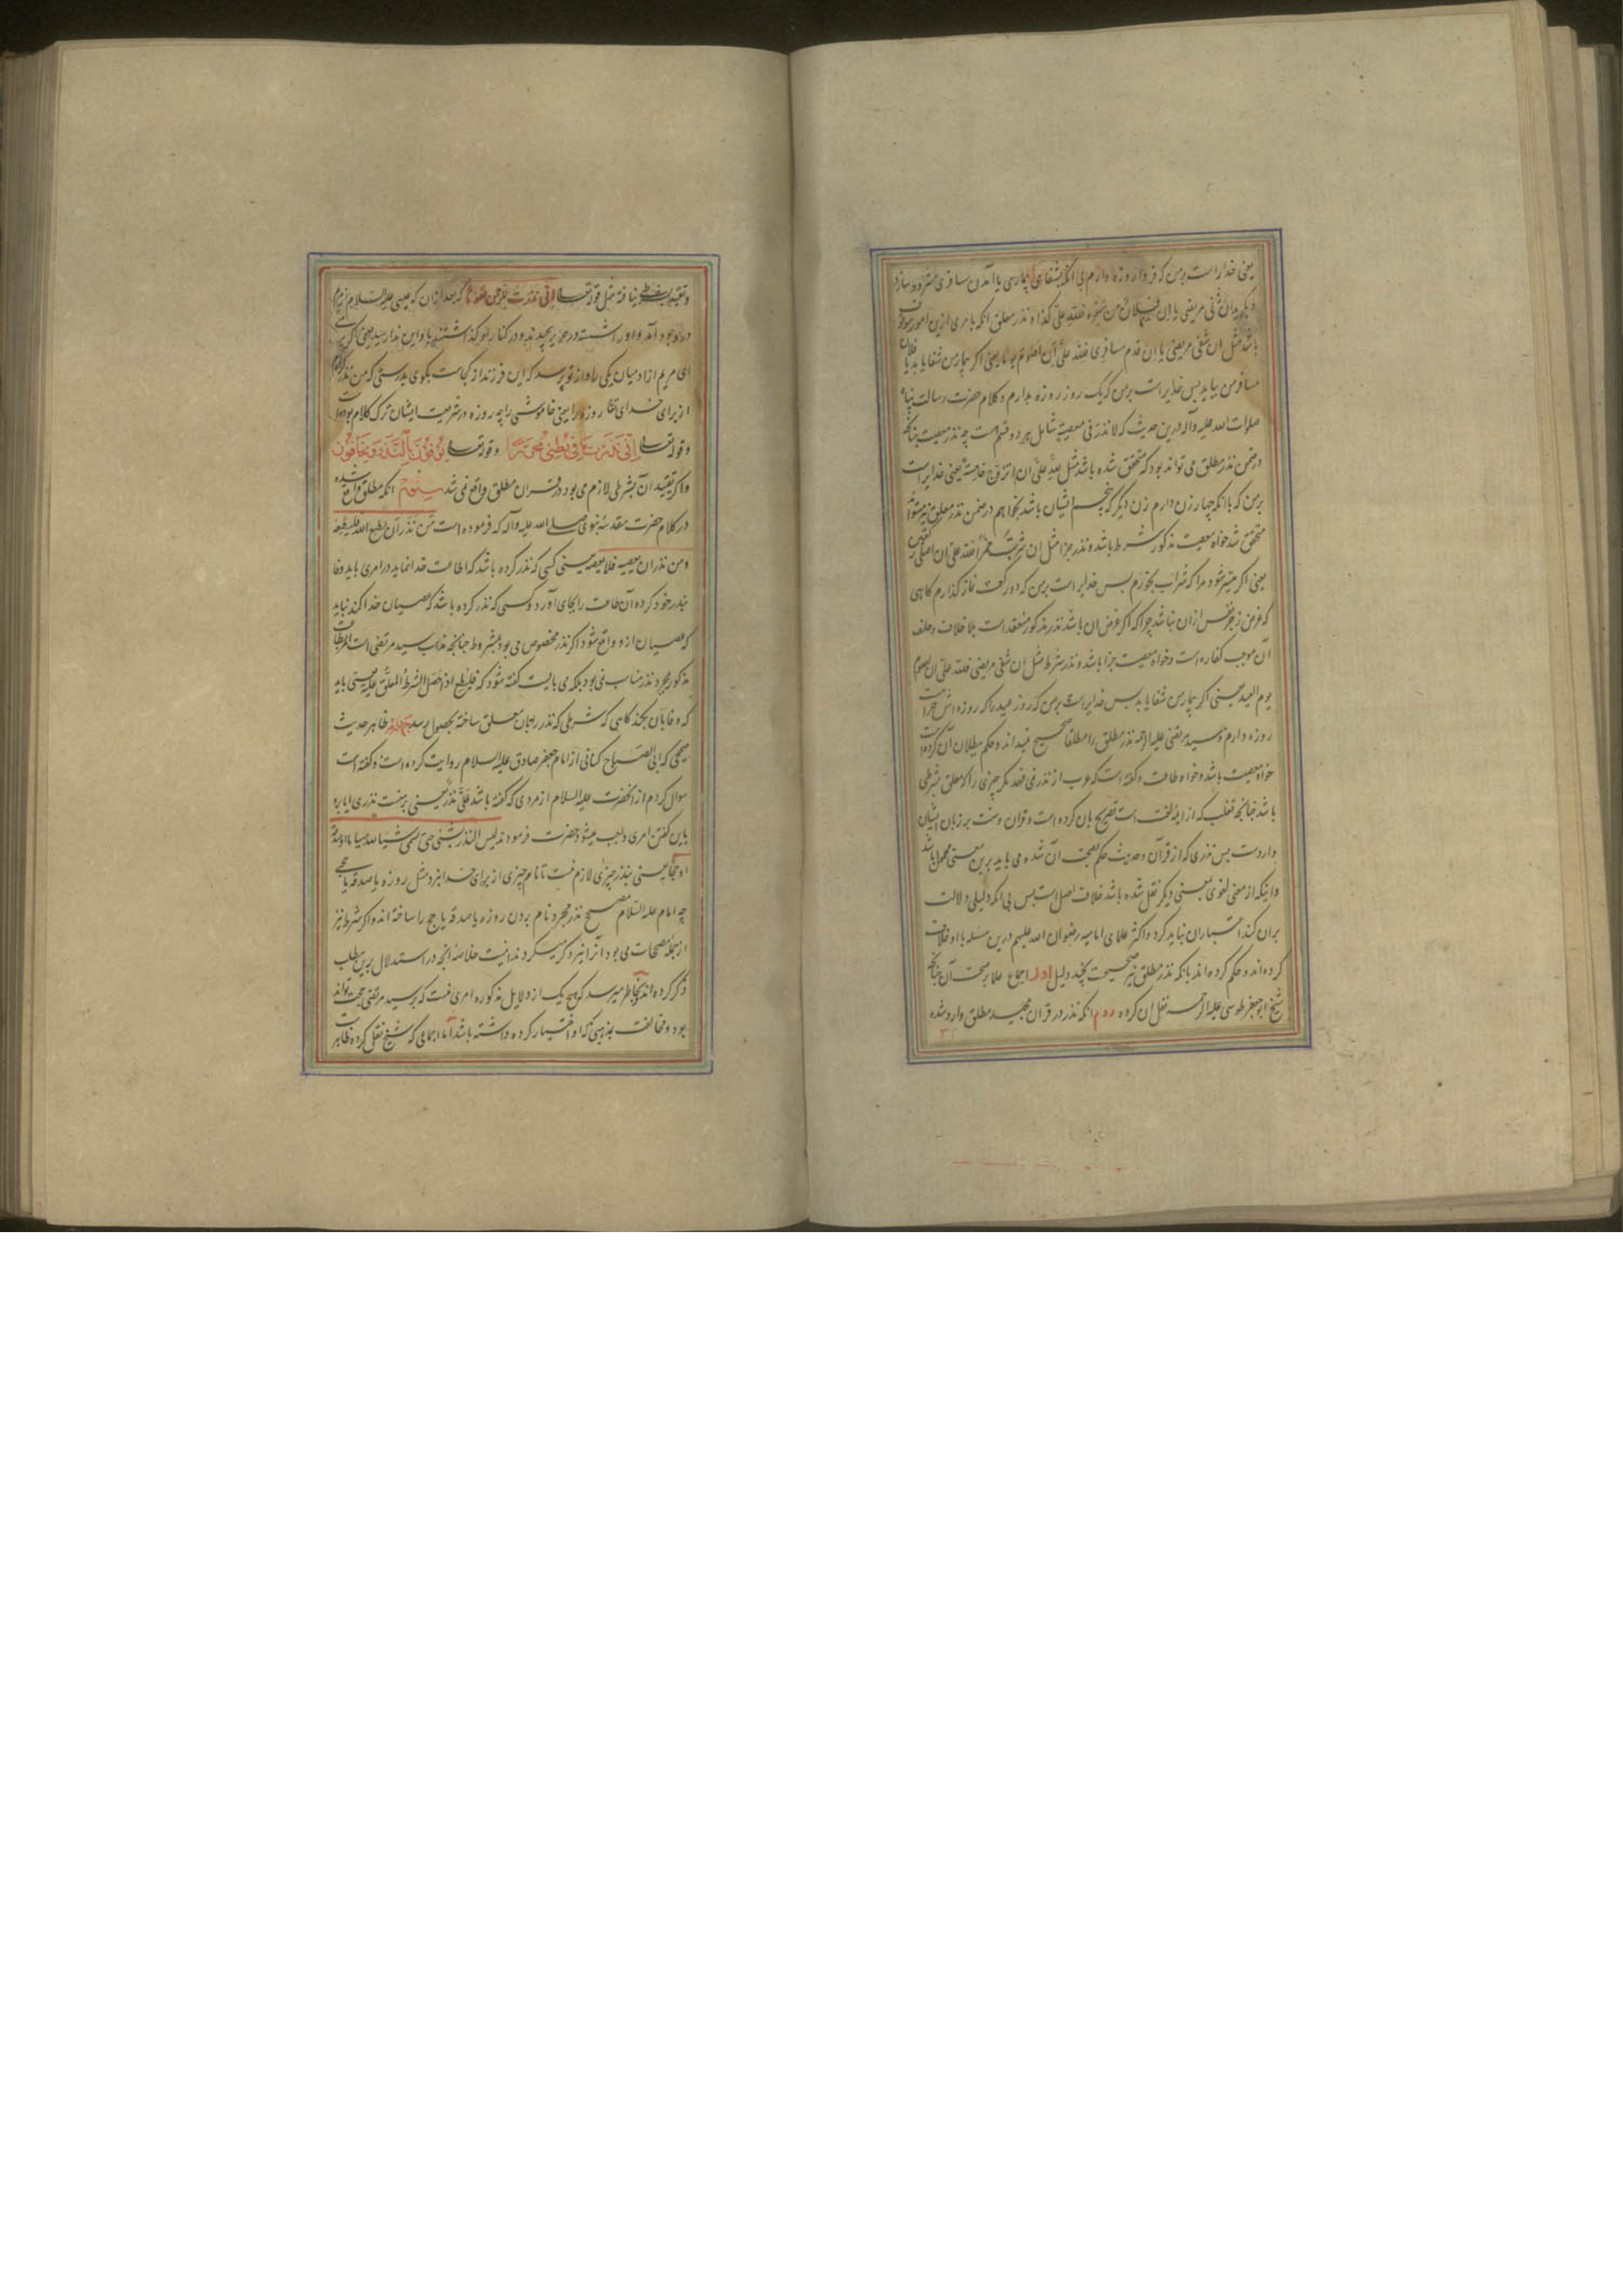 یعنی خدا راست بر من که فردا روزه دارم بی آنکه بشفای بیماری یا آمدن مسافری مشروط سازد
باشد مثل ان شفی مریضی یا ان قدم مسافری فلله علیّ ان اصوم یوما یعنی اگر بیمار من شفا یابد یا فلان
مسافر من بیاید پس خدایراست بر من که یک روز روزه بدارم و کلام حضرت رسالت پناه
صلوات الله علیه وآله درین حدیث که لا نذر فی معصیة شامل هر دو قسم است چه نذر معصیت چنانکه
در ضمن نذر مطلق می تواند بود که متحقق شده باشد مثل لله علیّ ان اتزوج خامسة یعنی خدایراست
بر من که با آنکه چهار زن دارم زن دیگر که پنجم ایشان باشد بخواهم در ضمن نذر معلق نیز میتواند
متحقق شد خواه معصیت مذکور شرط باشد و نذر جزا مثل ان شربت خمرا فلله علیّ ان اصلی رکعتین
یعنی اگر میسر شود مرا که شراب بخورم پس خدایراست بر من که دو رکعت نماز گذارم گاهی
که غرض زجر نفس ازان نباشد چرا که اگر غرض ان باشد نذر مذکور منعقد است بلا خلاف و خلف
آن موجب کفاره است و خواه معصیت جزا باشد و نذر شرط مثل ان شفی مریضی فلله علیّ ان اصوم
یوم العید یعنی اگر بیمار من شفا یابد پس خدایراست بر من که روز عید را که روزه اش حرامست
روزه دارم و سید مرتضی علیه الرحمه نذر مطلق را مطلقا صحیح نمیداند و حکم ببطلان آن کرده است
خواه معصیت باشد و خواه طاعت و گفته است که عرب از نذر نمی فهمد مگر چیزی را که معلق بشرطی
باشد چنانچه ثعلب که از ایمه لغت است تصریح بان کرده است و قران و سنت بر زبان ایشان
واردست پس نذری که از قرآن و حدیث حکم بصحت آن شده می باید برین معنی محمول باشد
و اینکه از معنی لغوی بمعنی دیگر نقل شده باشد خلاف اصل است پس بی آنکه دلیلی دلالت
بران کند اعتبار ان نباید کرد و اکثر علمای امامیه رضوان الله علیهم درین مسئله با او خلاف
کرده اند و حکم کرده اند بانکه نذر مطلق نیز صحیحست بچند دلیل اول اجماع علما بر صحت آن چنانکه
شیخ ابو جعفر طوسی علیه الرحمه نقل ان کرده دوم انکه نذر در قران مجید مطلق وارد شده
و تقیید بشرط نیافته مثل قوله تعالی انی نذرت للرحمن صوما که بعد ازان که عیسی علیه السلام از مریم
ای مریم از ادمیان یکی را و از تو پرسد که این فرزند از کجاست بگوی بدرستی که من نذر کرده ام
از برای خدای تعالی روزه را یعنی خاموشی را چه روزه در شریعت ایشان ترک کلام بوده است
و قوله تعالی انی نذرت لک ما فی بطنی محررا و قوله تعالی یوفون بالنذر و یخافون
و اگر تقیید آن بشرطی لازم می بود در قران مطلق واقع نمی شد سیوم انکه مطلق واقع شده
در کلام حضرت مقدسه نبوی صلی الله علیه وآله که فرموده است من نذر ان یطیع الله فلیطعه
و من نذر ان یعصیه فلا یعصه یعنی کسی که نذر کرده باشد که اطاعت خدا نماید در امری باید وفا
بنذر خود کرده آن طاعت را بجای آورد و کسی که نذر کرده باشد که عصیان خدا کند نباید
که عصیان ازو واقع شود اگر نذر مخصوص می بود بمشروط چنانچه مذهب سید مرتضی است
مذکور بمجرد نذر مناسب نمی بود بلکه می بایست گفته شود که فلیطع اذا حصل الشرط المعلق علیه یعنی باید
که وفا بان بکند گاهی که شرطی که نذر را بان معلق ساخته بحصول رسد چهارم ظاهر حدیث
صحیحی که ابی الصباح کنانی از امام جعفر صادق علیه السلام روایت کرده است و گفته است
سوال کردم از آنحضرت علیه السلام از مردی که گفته باشد علیّ نذر یعنی بر منست نذری ایا برو
باین گفتن امری واجب میشود حضرت فرمودند لیس النذر بشی حتی یسمی شیئا لله صیاما او صدقة
او حجا یعنی بنذر چیزی لازم نیست تا نام چیزی از برای خدا نبرد مثل روزه یا صدقه یا حج
چه امام علیه السلام مصحح نذر مجرد نام بردن روزه یا صدقه یا حج را ساخته اند و اگر شرط نیز
از جمله مصححات می بود آنرا نیز ذکر میکردند اینست خلاصه انچه در استدلال برین مطلب
ذکر کرده اند و بخاطر میرسد که هیچ یک از دلایل مذکوره امری نیست که بر سید مرتضی حجت تواند
بود و مخالفت بمذهبی که او اختیار کرده داشته باشد اما اجماعی که شیخ نقل کرده ظاهر